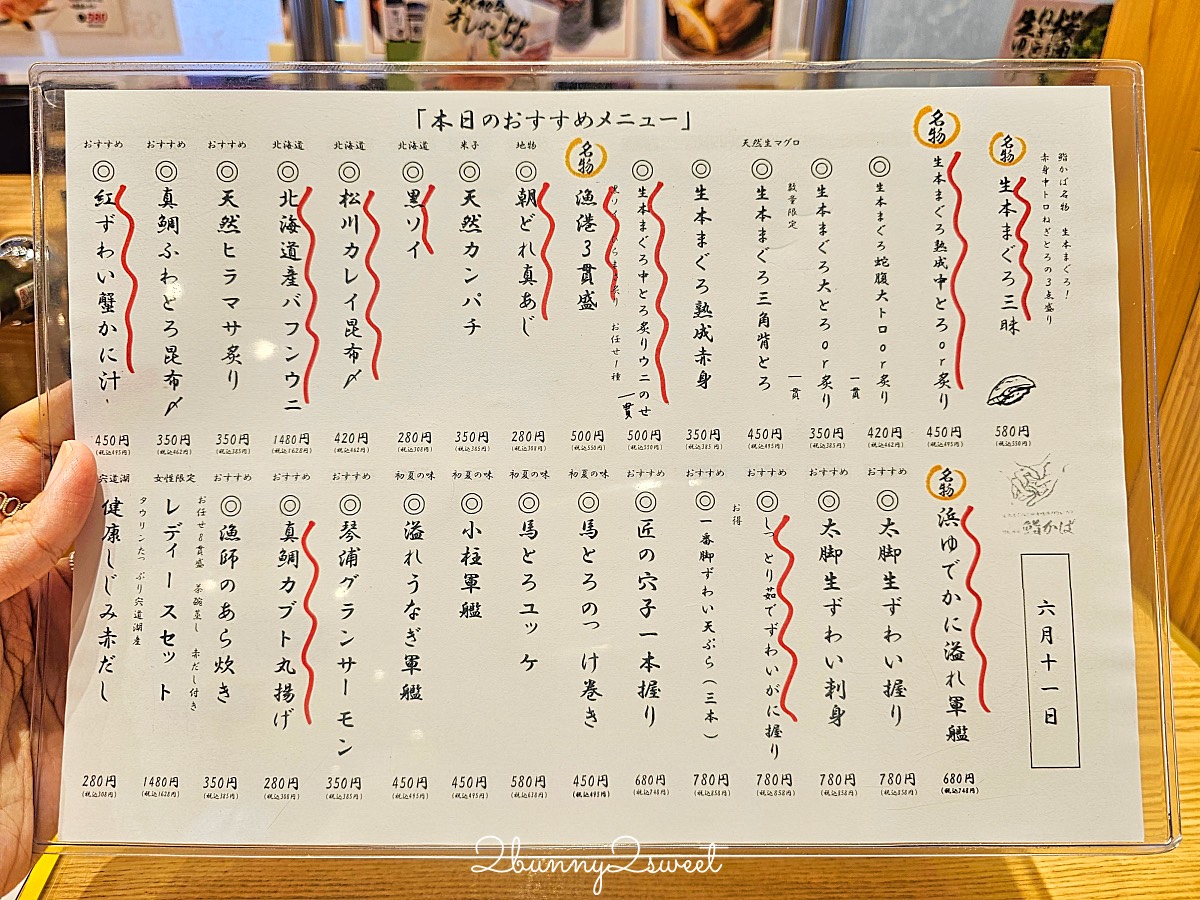 オレイン55
「本日のおすすめメニュー」
鮨かば名物 生本まぐろ！
赤身中トロねぎとろの3点盛り
名物
生本まぐろ三昧
580円
名物
生本まぐろ熟成中とろor炙り
450円
(税込495円)
天然生マグロ
◎生本まぐろ蛇腹大トロor炙り
一貫
420円
(税込462円)
◎生本まぐろ大とろor炙り
一貫
350円
(税込385円)
数量限定
◎生本まぐろ三角背とろ
450円
(税込495円)
◎生本まぐろ熟成赤身
350円
(税込385円)
◎生本まぐろ中とろ炙りウニのせ
一貫
500円
(税込550円)
お任せ1種
名物
漁港3貫盛
500円
(税込550円)
地物
◎朝どれ真あじ
280円
(税込308円)
米子
◎天然カンパチ
350円
(税込385円)
北海道
◎黒ソイ
280円
(税込308円)
北海道
◎松川カレイ昆布〆
420円
(税込462円)
北海道
◎北海道産バフンウニ
1480円
(税込1628円)
おすすめ
◎天然ヒラマサ炙り
350円
(税込385円)
おすすめ
◎真鯛ふわとろ昆布〆
350円
(税込462円)
おすすめ
◎紅ずわい蟹かに汁
450円
(税込495円)
鮨かば
六月十一日
名物
浜ゆでかに溢れ軍艦
680円
(税込748円)
おすすめ
◎太脚生ずわい握り
780円
(税込858円)
おすすめ
◎太脚生ずわい刺身
780円
(税込858円)
おすすめ
◎しっとり茹でずわいがに握り
780円
(税込858円)
お得
おすすめ
◎一番脚ずわい天ぷら(三本)
780円
(税込858円)
おすすめ
◎匠の穴子一本握り
680円
(税込748円)
初夏の味
◎馬とろのっけ巻き
450円
(税込495円)
初夏の味
◎馬とろユッケ
580円
(税込638円)
初夏の味
◎小柱軍艦
450円
(税込495円)
初夏の味
◎溢れうなぎ軍艦
450円
(税込495円)
おすすめ
◎琴浦グランサーモン
350円
(税込385円)
おすすめ
◎真鯛カブト丸揚げ
280円
(税込308円)
おすすめ
◎漁師のあら炊き
350円
(税込385円)
お任せ8貫盛 茶碗蒸し 赤だし付き
女性限定
レディースセット
1480円
(税込1628円)
タウリンたっぷり宍道湖産
宍道湖
健康しじみ赤だし
280円
(税込308円)
2bunny2sweet